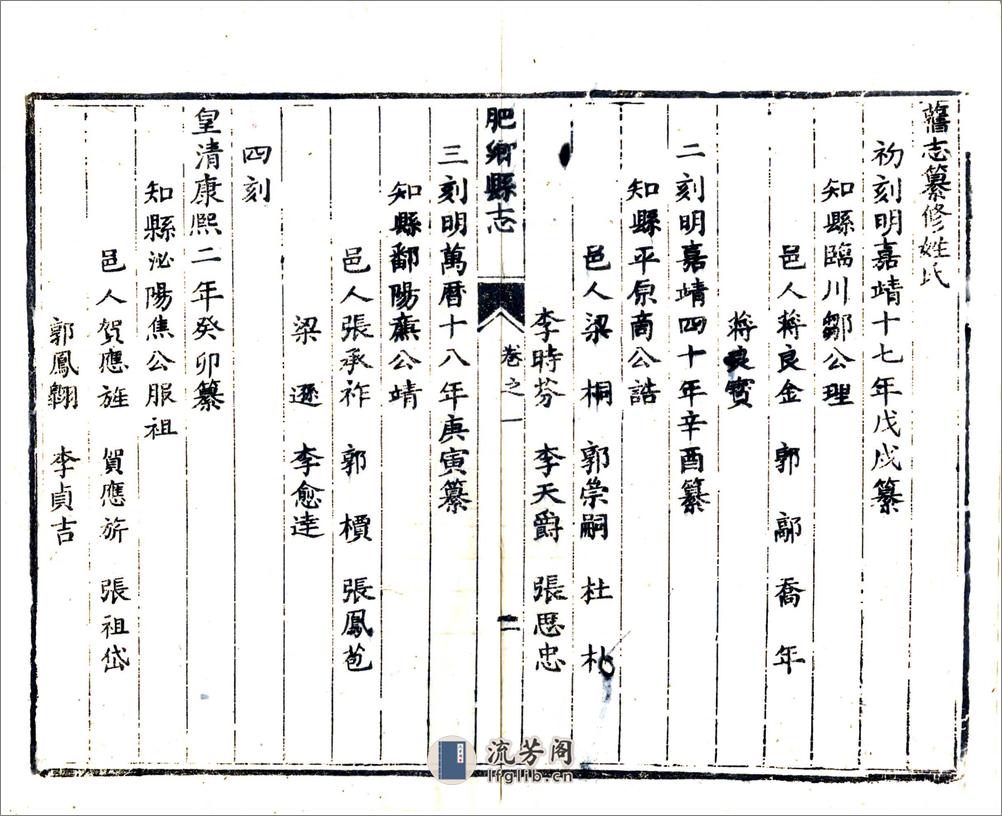 舊志纂修姓氏
初刻明嘉靖十七年戊戌纂
知縣臨川鄒公理
邑人蔣良金 郭鄗 喬年
蔣良寶
二刻明嘉靖四十年辛酉纂
知縣平原商公誥
邑人梁桐 郭崇嗣 杜
李時芬 李天爵 張思忠
肥鄉縣志
卷之一
二
三刻明萬曆十八年庚寅纂
知縣鄱陽 公靖
邑人張承祚 郭檟 張鳳苞
梁遜 李愈達
四刻
皇清康熙二年癸卯纂
知縣泌陽焦公服祖
邑人賀應旌 賀應旂 張祖岱
郭鳳翱 李貞吉
流芳阁
lfglib.cn